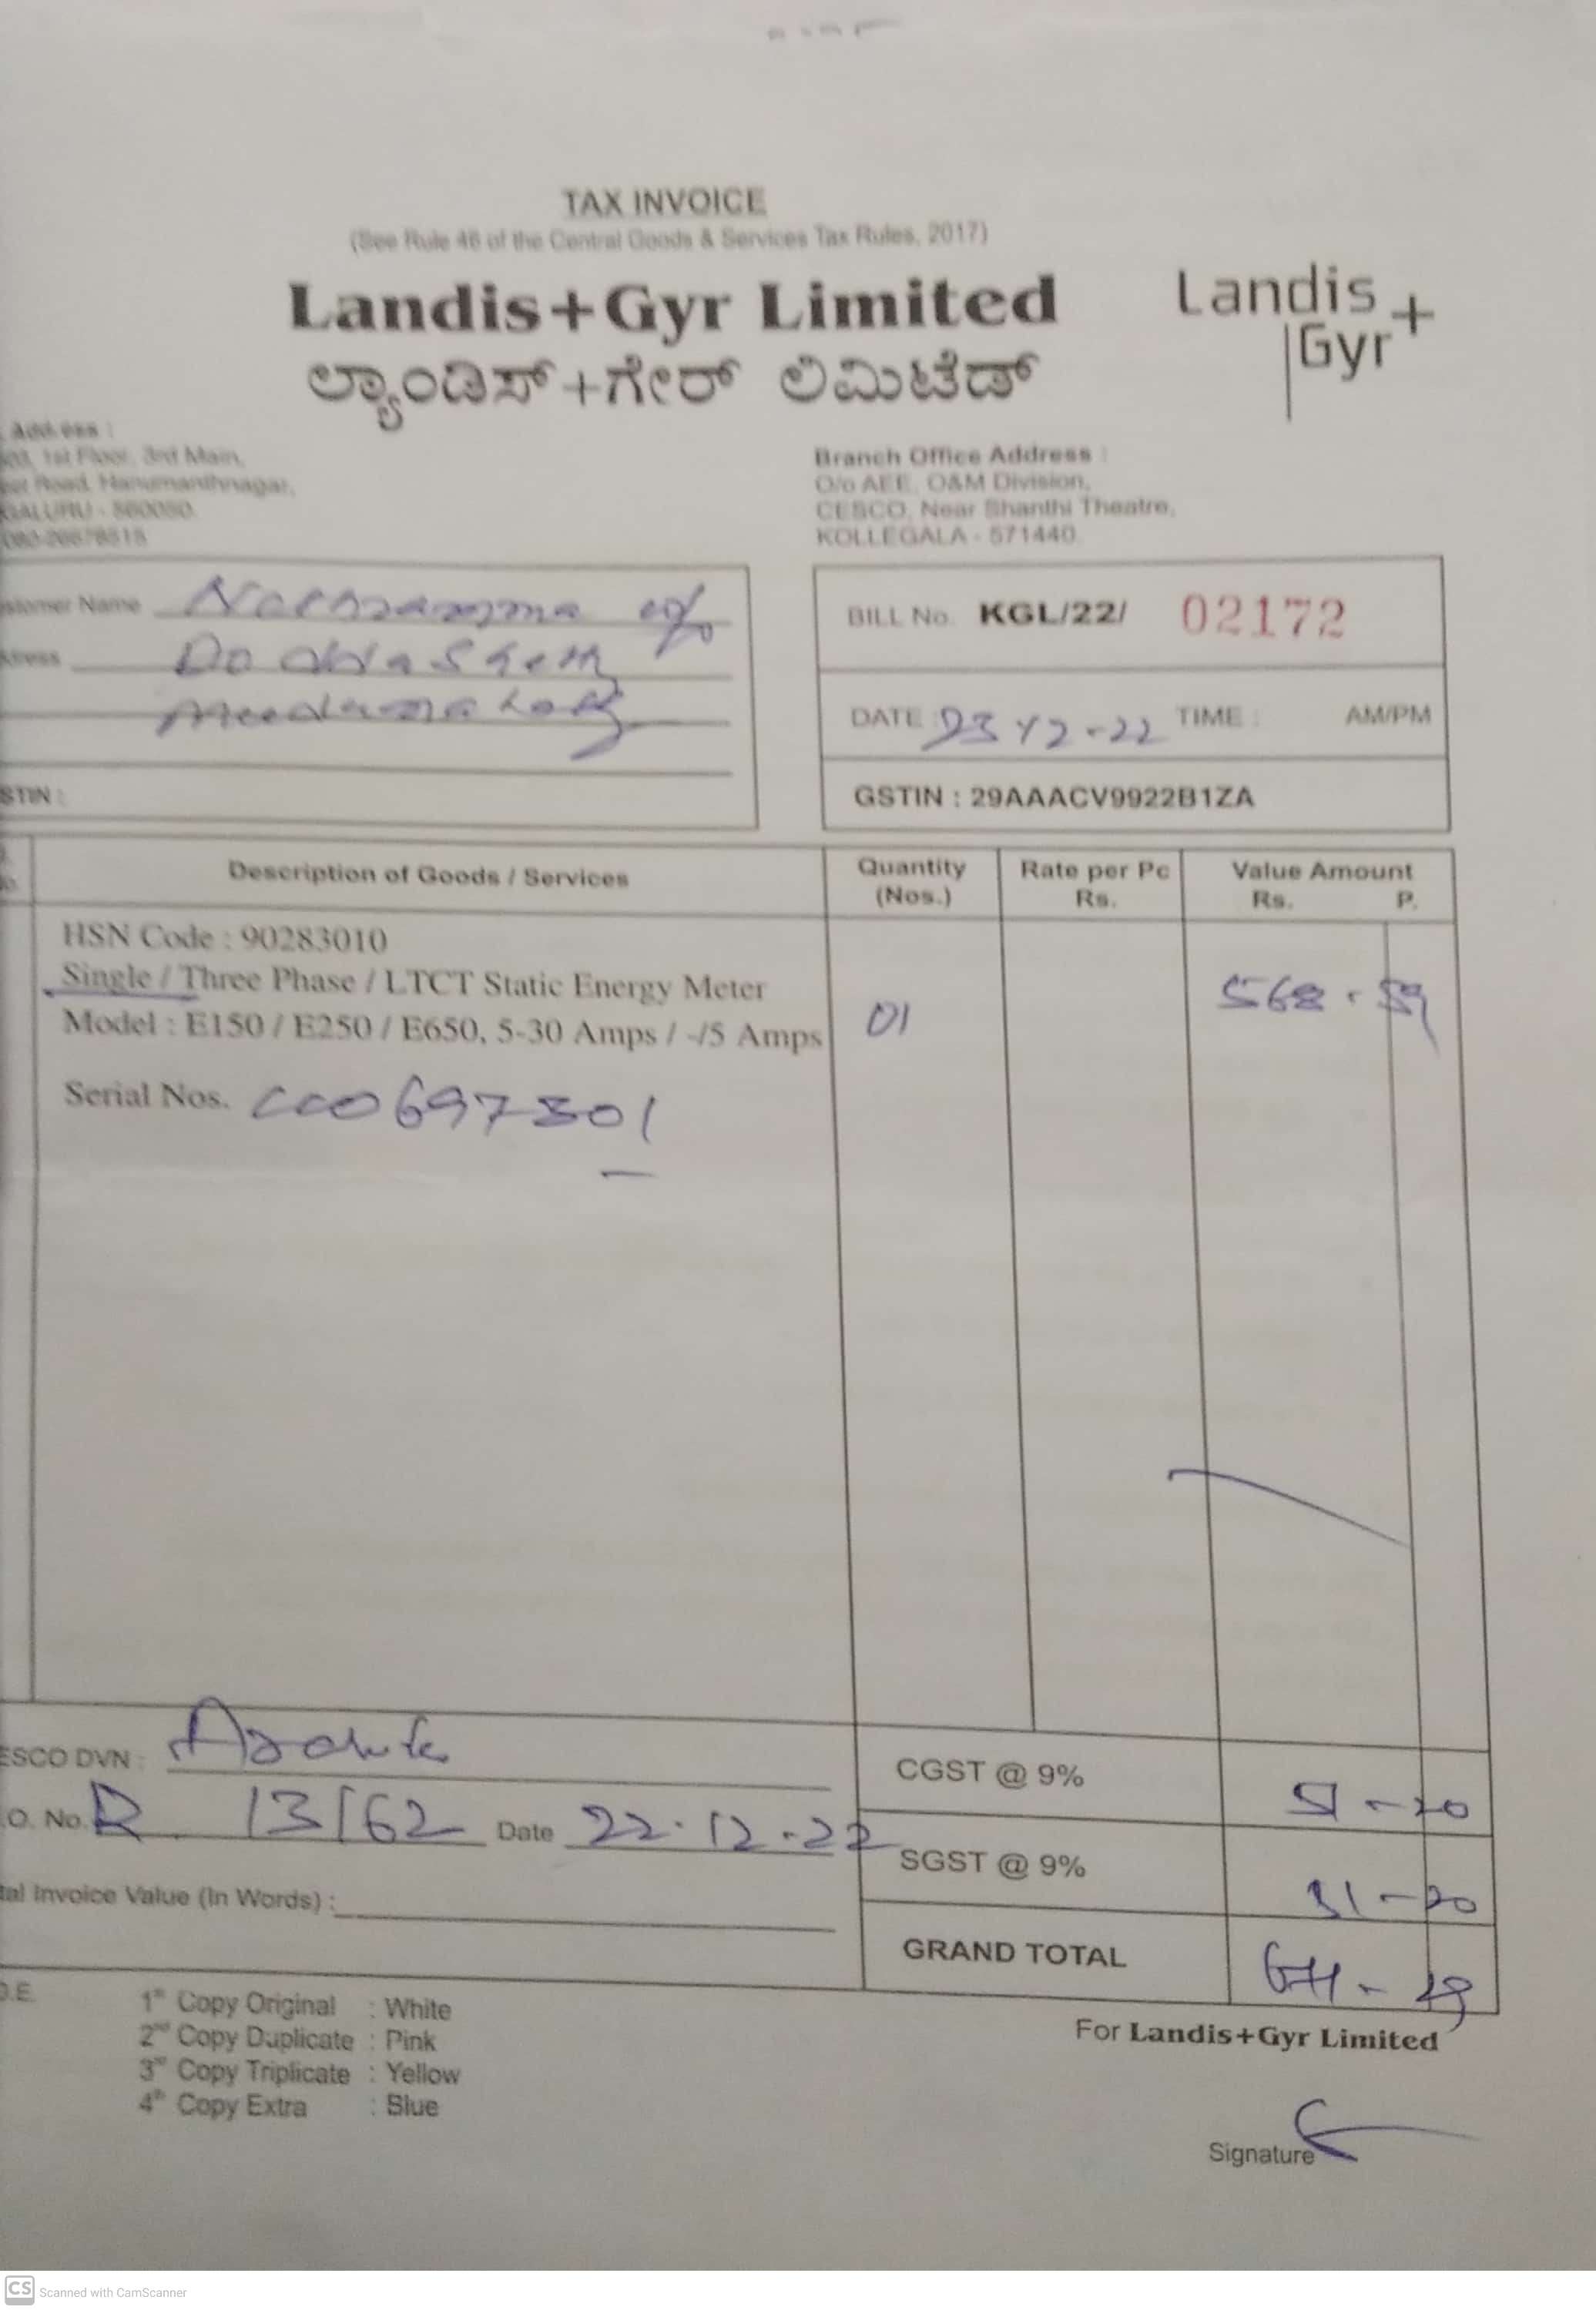 TAX INVOICE
(See Rule 46 of the Central Goods & Services Tax Rules, 2017)
Landis+Gyr Limited
ಲ್ಯಾಂಡಿಸ್+ಗೇರ್ ಲಿಮಿಟೆಡ್
Landis
Gyr+
Address :
1st Floor, 3rd Main,
Road, Hanumanthnagar,
GALURU - 560050
Branch Office Address :
O/o AEE, O&M Division,
CESCO, Near Shanthi Theatre,
KOLLEGALA - 571440.
stomer Name
dress
STIN :
BILL No. KGL/22/ 02172
DATE 23 12-22 TIME : AM/PM
GSTIN : 29AAACV9922B1ZA
Description of Goods / Services
Quantity (Nos.)
Rate per Pc Rs.
Value Amount Rs. P.
HSN Code : 90283010
Single / Three Phase / LTCT Static Energy Meter
Model : E150 / E250 / E650, 5-30 Amps / -/5 Amps
01
568 - 59
Serial Nos. CC0697301
ESCO DVN :
.O. No. R 13162 Date 22.12.22
tal Invoice Value (In Words) :
CGST @ 9% 51 - 20
SGST @ 9% 51 - 20
GRAND TOTAL 671 -
O.E.
1st Copy Original : White
2nd Copy Duplicate : Pink
3rd Copy Triplicate : Yellow
4th Copy Extra : Blue
For Landis+Gyr Limited
Signature
CS Scanned with CamScanner